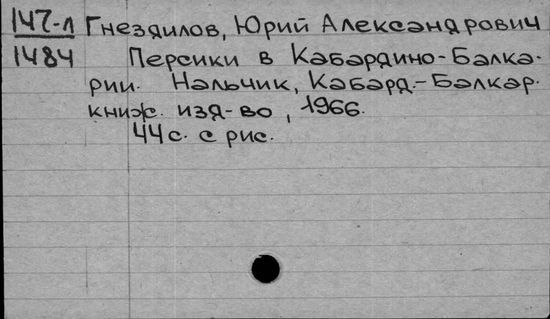 147-л Гнездилов, Юрий Александрович
1484 Персики в Кабардино-Балка-
рии. Нальчик, Кабард.-Балкар.
книж. изд-во, 1966.
44 с. с рис.